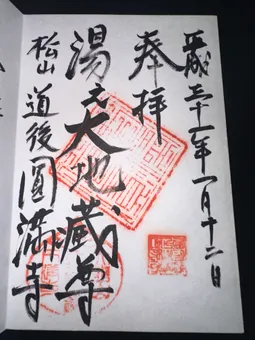 平成三十一年一月十二日
奉拝
湯之大地蔵尊
松山 道後 圓満寺